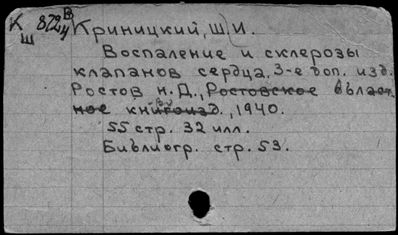 К 872 В
Ш 4
Криницкий, Ш И.
Воспаление и склерозы
клапанов сердца, 3-е доп. изд.
Ростов н. Д., Ростовское област-
ное книгоизд., 1940.
55 стр. 32 илл.
Библиогр. стр. 53.